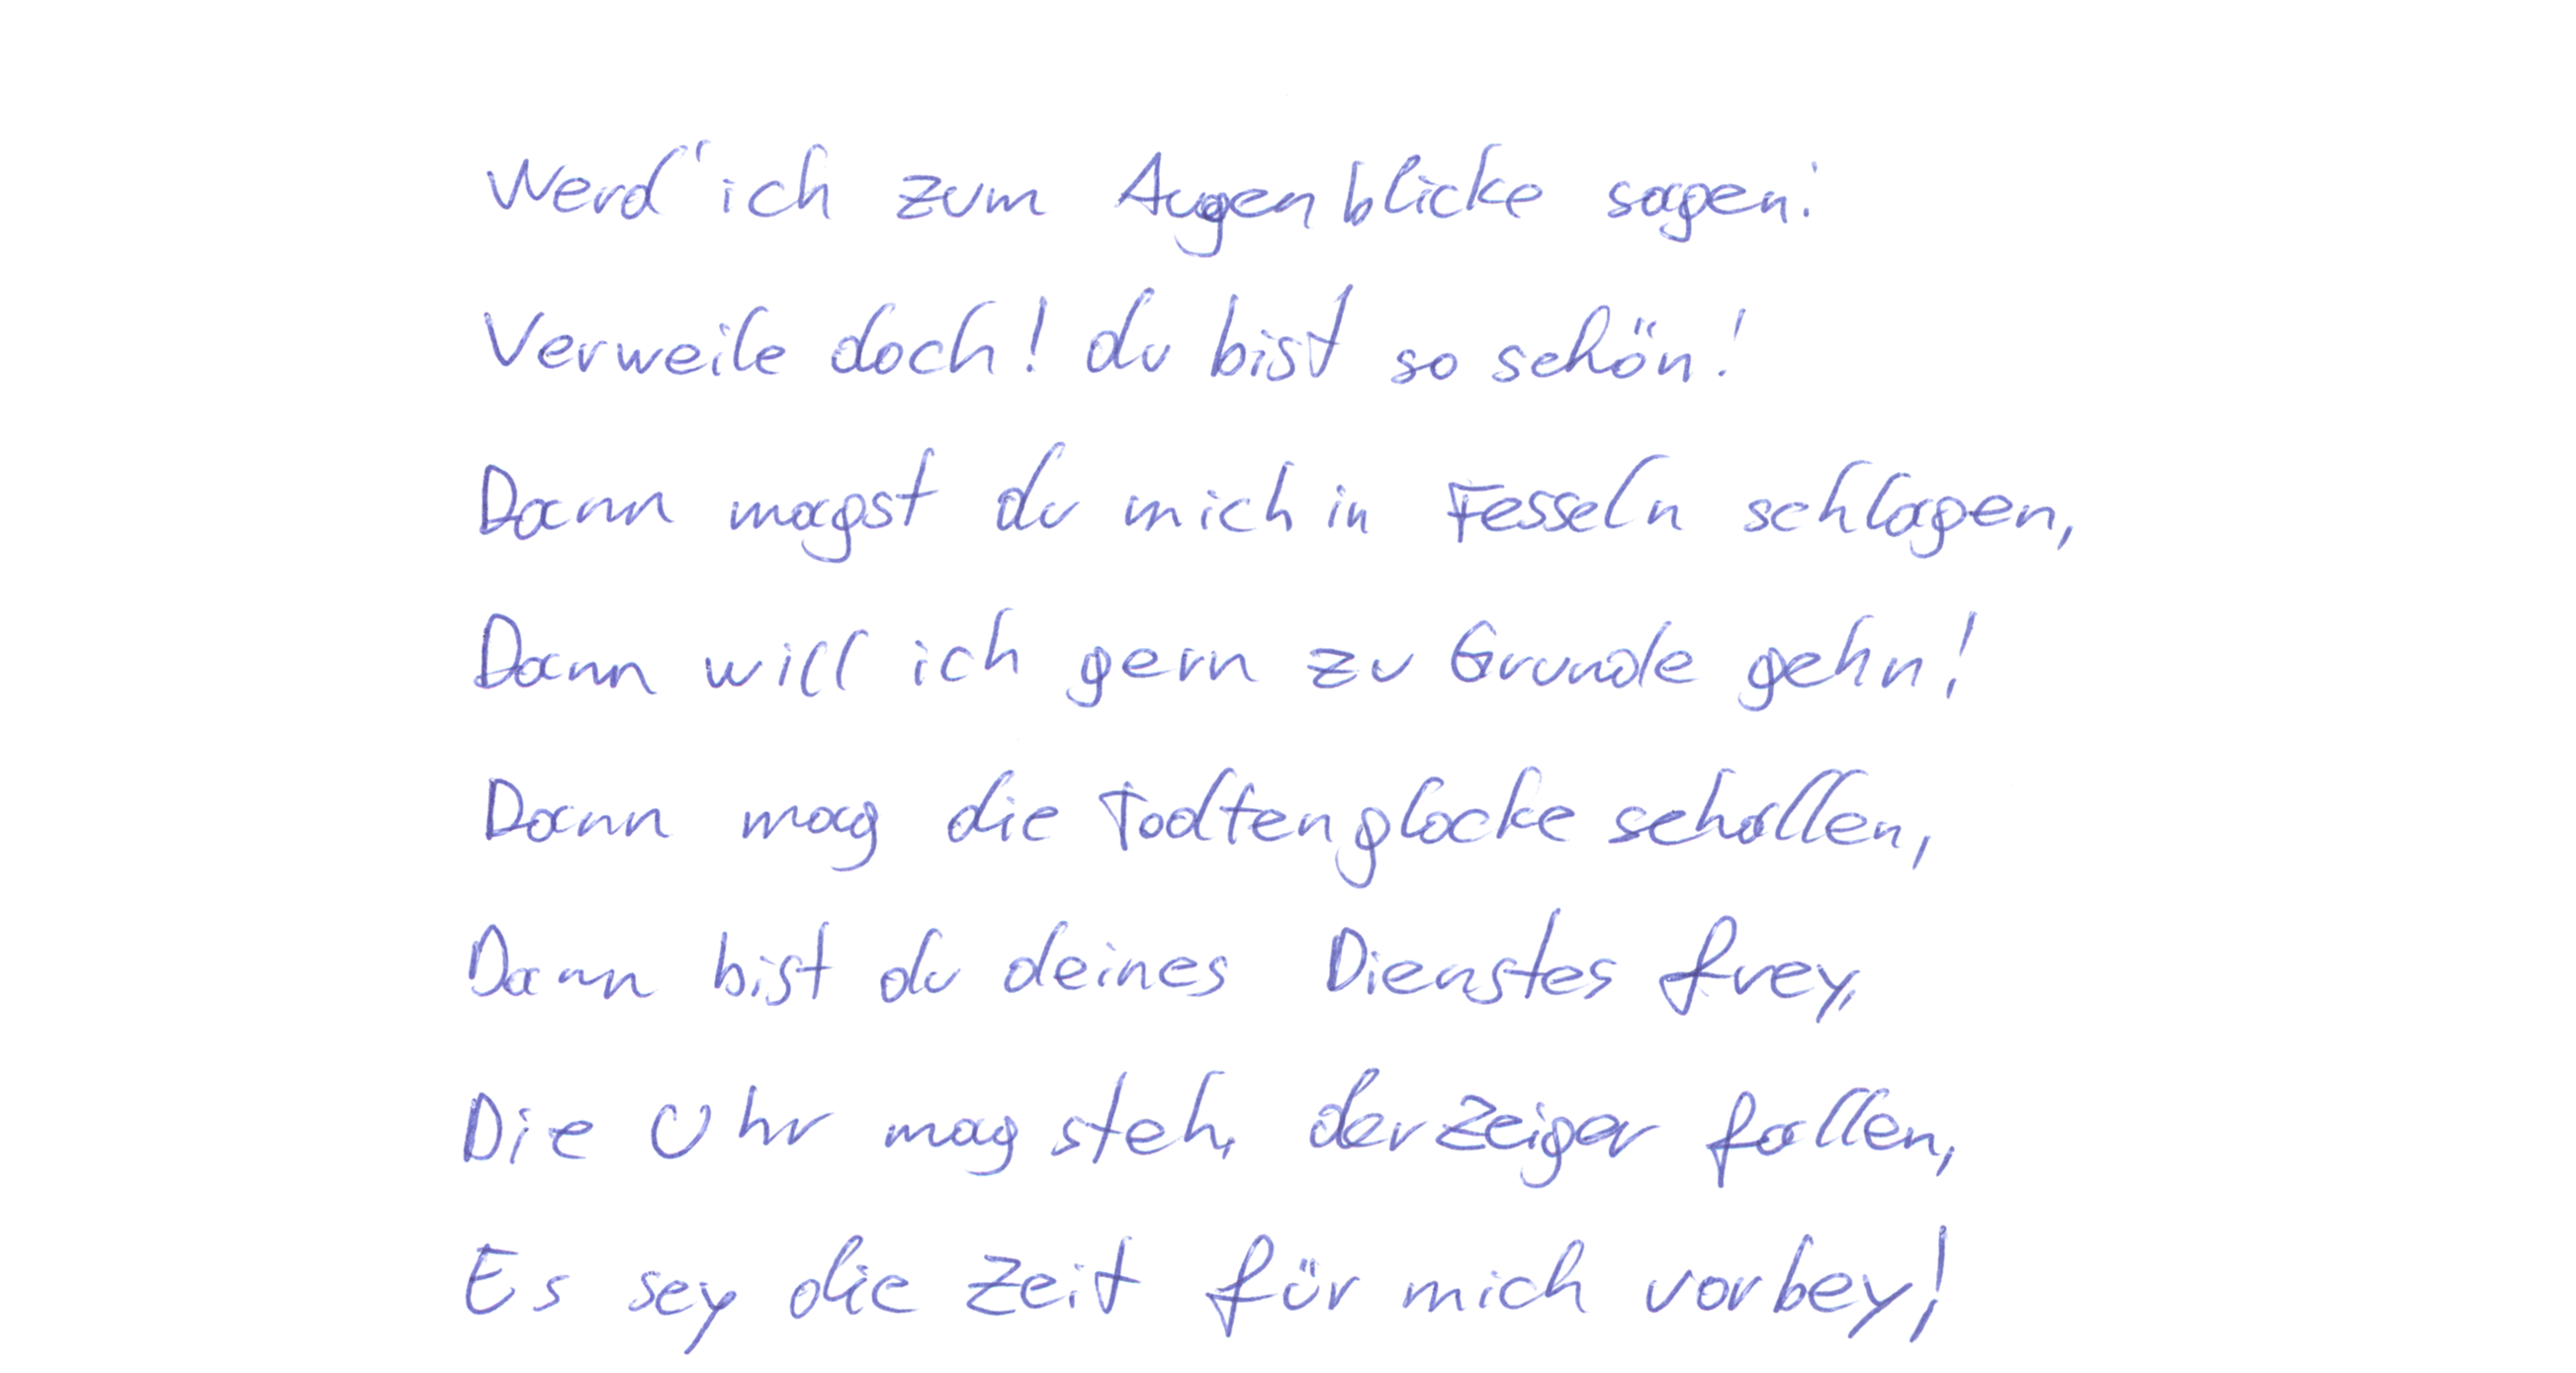 Werd' ich zum Augenblicke sagen:
Verweile doch! du bist so schön!
Dann magst du mich in Fesseln schlagen,
Dann will ich gern zu Grunde gehn!
Dann mag die Todtenglocke schallen,
Dann bist du deines Dienstes frey,
Die Uhr mag steh, der Zeiger fallen,
Es sey die Zeit für mich vorbey!